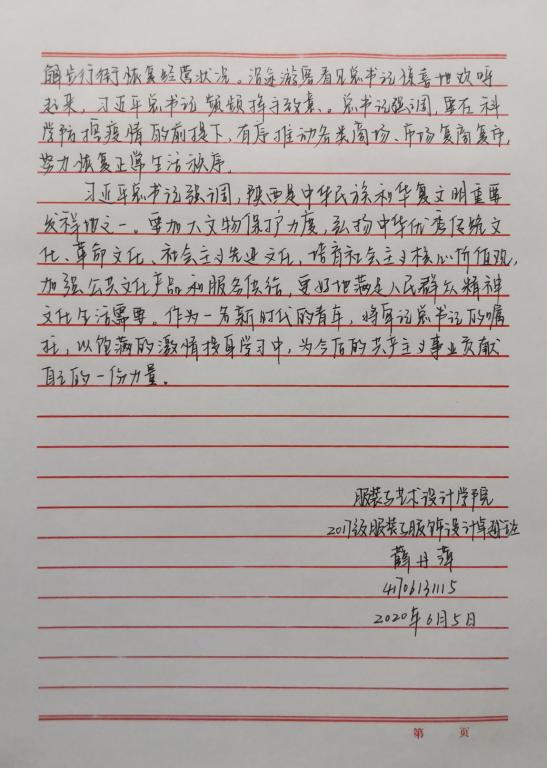 解步行街恢复经营状况。沿途游客看见总书记惊喜地欢呼
起来，习近平总书记频频挥手致意。总书记强调，要在科
学防控疫情的前提下，有序推动各类商场、市场复商复市，
努力恢复正常生活秩序。
习近平总书记强调，陕西是中华民族和华夏文明重要
发祥地之一。要加大文物保护力度，弘扬中华优秀传统文
化、革命文化、社会主义先进文化，培育社会主义核心价值观，
加强公共文化产品和服务供给，更好地满足人民群众精神
文化生活需要。作为一名新时代的青年，将牢记总书记的嘱
托，以饱满的激情投身学习中，为今后的共产主义事业贡献
自己的一份力量。
服装与艺术设计学院
2017级服装与服饰设计卓越班
薛丹萍
41706131115
2020年6月5日
第 页